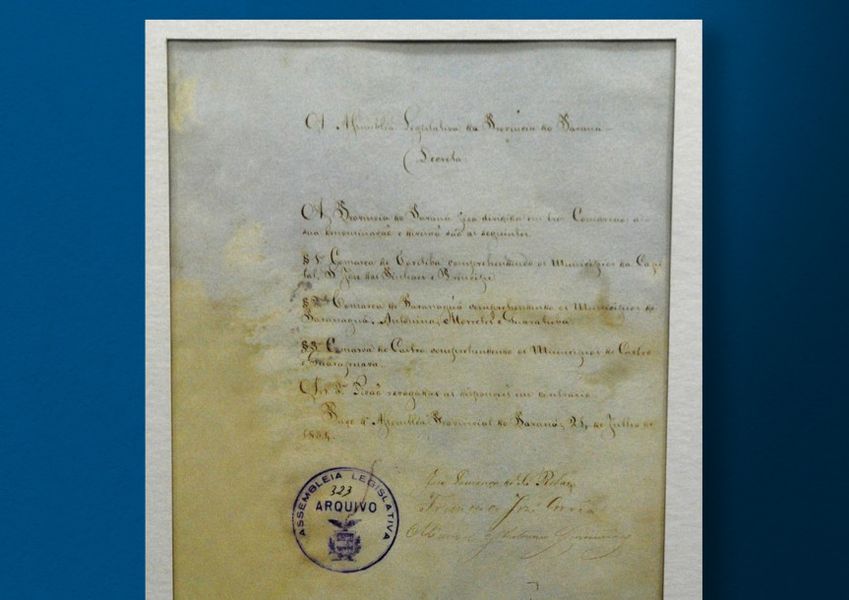 A Assemblea Legislativa da Provincia do Paraná
Decreta
A Provincia do Paraná fica dividida em tres Comarcas, a
sua denominação e divisão são as seguintes
§ 1º Comarca de Coritiba comprehendendo os Municipios da Capi
tal, S José dos Pinhaes e Principe
§ 2º Comarca de Paranaguá comprehendendo os Municipios de
Paranaguá, Antonina, Morretes e Guaratuba
§ 3º Comarca de Castro comprehendendo os Municipios de Castro
e Guarapuava
Art 2º Ficão revogadas as disposições em contrario
Paço da Assemblea Provincial do Paraná, de Julho de
1854
ASSEMBLEIA LEGISLATIVA
323
ARQUIVO
José Lourenço de Sá Ribas
Francisco José Correia